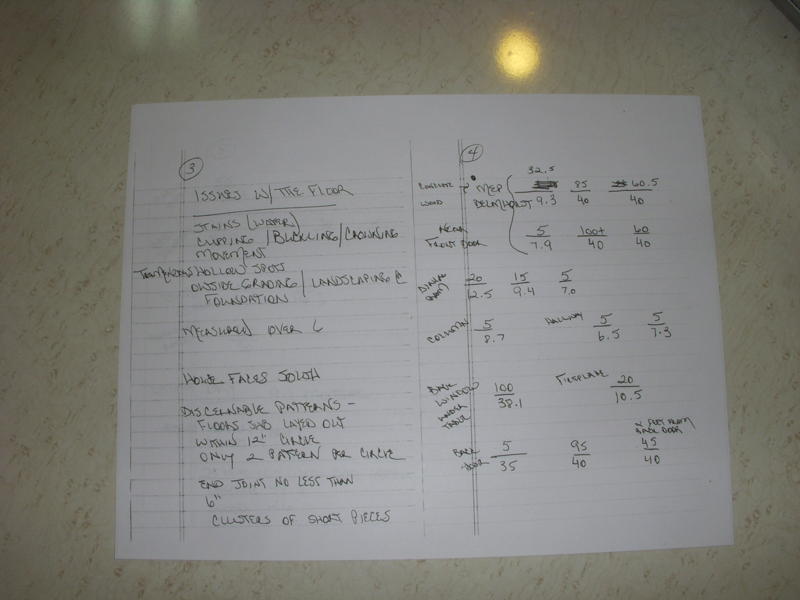 3
ISSUES W/ THE FLOOR
STAINS (WATER)
CUPPING / BUCKLING / CROWNING
MOVEMENT
HOLLOW SPOTS
OUTSIDE GRADING / LANDSCAPING @
FOUNDATION
MEASURED OVER 6
HOUSE FACES SOUTH
DISCERNABLE PATTERNS -
FLOORS LAYED OUT
WITHIN 12" CIRCLE
ONLY 2 PATTERN PER CIRCLE
END JOINT NO LESS THAN
6"
CLUSTERS OF SHORT PIECES
4
32.5
CONCRETE MEP 85 60.5
WOOD DELMHORST 9.3 40 40
NEAR 5 100+ 60
FRONT DOOR 7.9 40 40
DINING 20 15 5
ROOM 12.5 9.4 7.0
COLUMN 5 HALLWAY 5 5
8.7 6.5 7.3
BACK 100 FIREPLACE 20
WINDOW 38.1 10.5
UNDER
TABLE
2 FEET FROM
BACK DOOR
BACK 5 95 45
DOOR 35 40 40